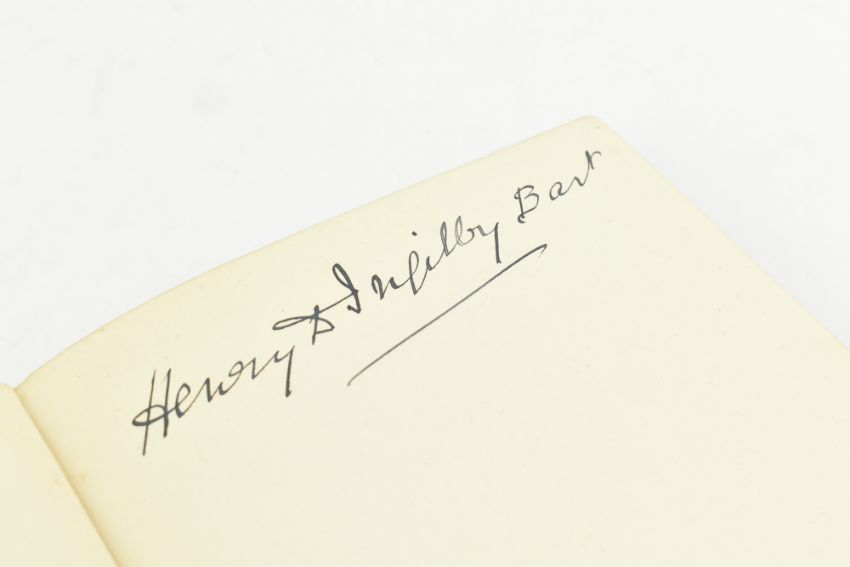 Henry D Ingilby Bart